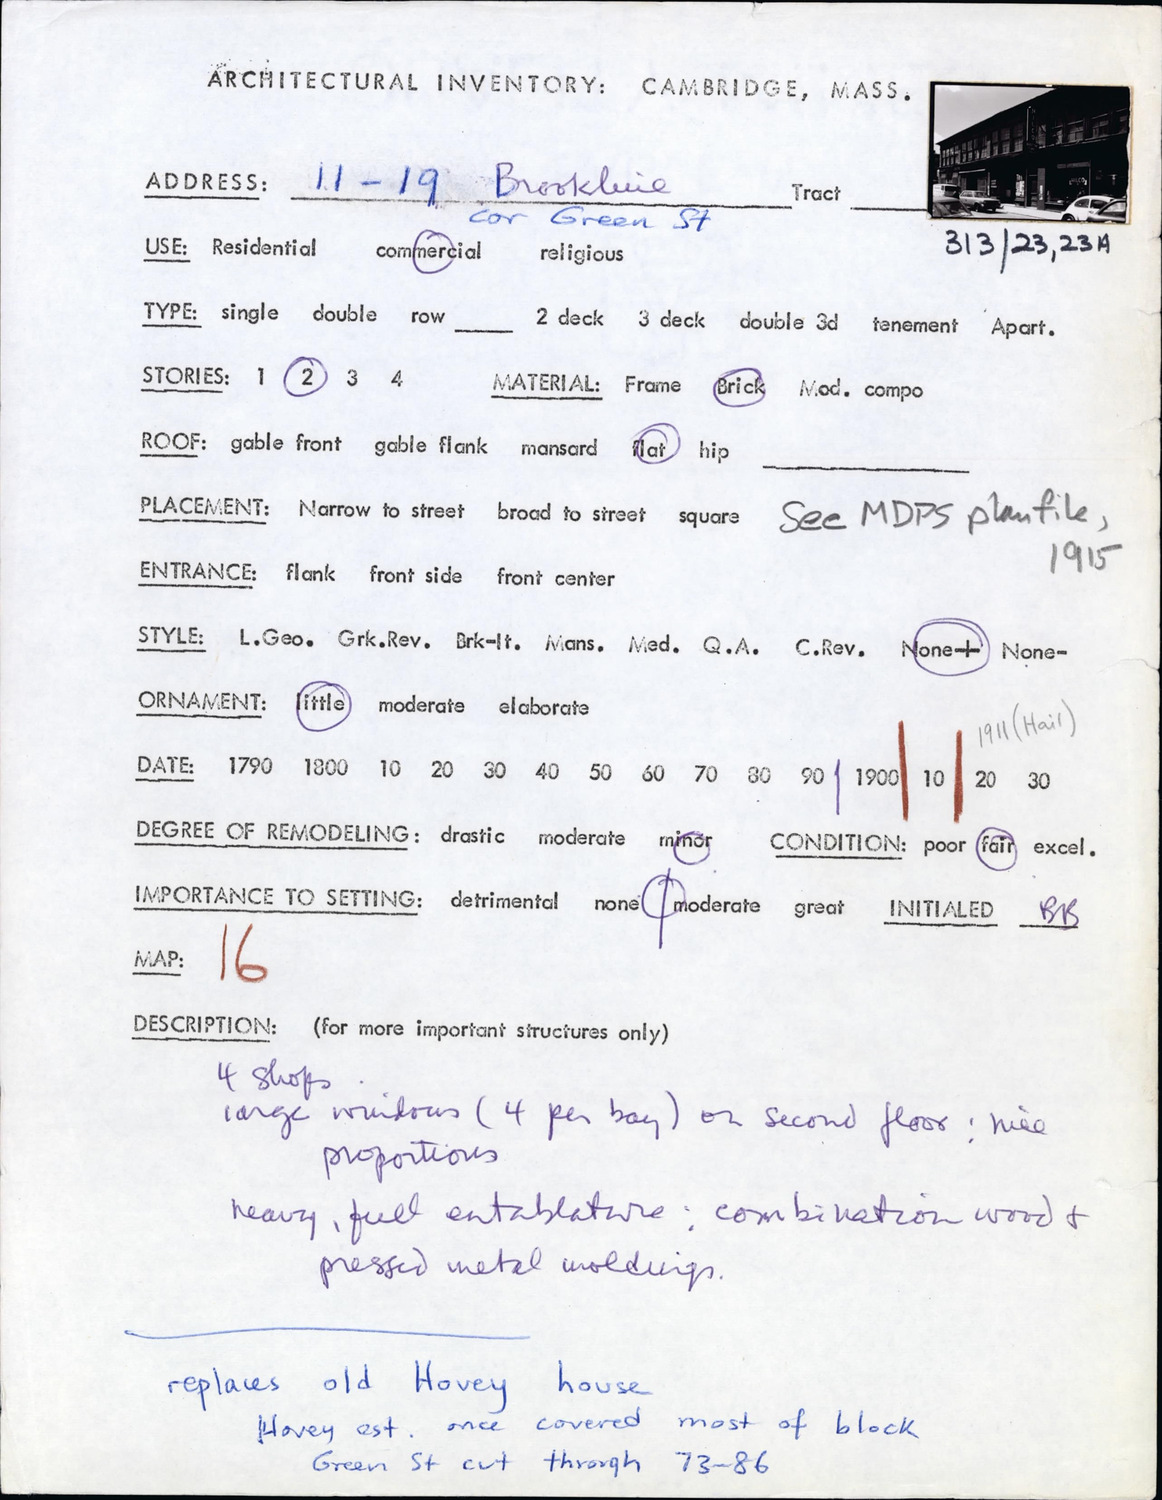 ARCHITECTURAL INVENTORY: CAMBRIDGE, MASS.
ADDRESS: 11-19 Brookline Tract
cor Green St
313/23,23A
USE: Residential commercial religious
TYPE: single double row 2 deck 3 deck double 3d tenement Apart.
STORIES: 1 2 3 4 MATERIAL: Frame Brick Mod. compo
ROOF: gable front gable flank mansard flat hip
PLACEMENT: Narrow to street broad to street square See MDPS planfile,
1915
ENTRANCE: flank front side front center
STYLE: L.Geo. Grk.Rev. Brk-It. Mans. Med. Q.A. C.Rev. None+ None-
ORNAMENT: little moderate elaborate
1911 (Hail)
DATE: 1790 1800 10 20 30 40 50 60 70 80 90 1900 10 20 30
DEGREE OF REMODELING: drastic moderate minor CONDITION: poor fair excel.
IMPORTANCE TO SETTING: detrimental none moderate great INITIALED BB
MAP: 16
DESCRIPTION: (for more important structures only)
4 shops
large windows (4 per bay) on second floor; nice
proportions
heavy, full entablature; combination wood &
pressed metal moldings.
replaces old Hovey house
Hovey est. once covered most of block
Green St cut through 73-86